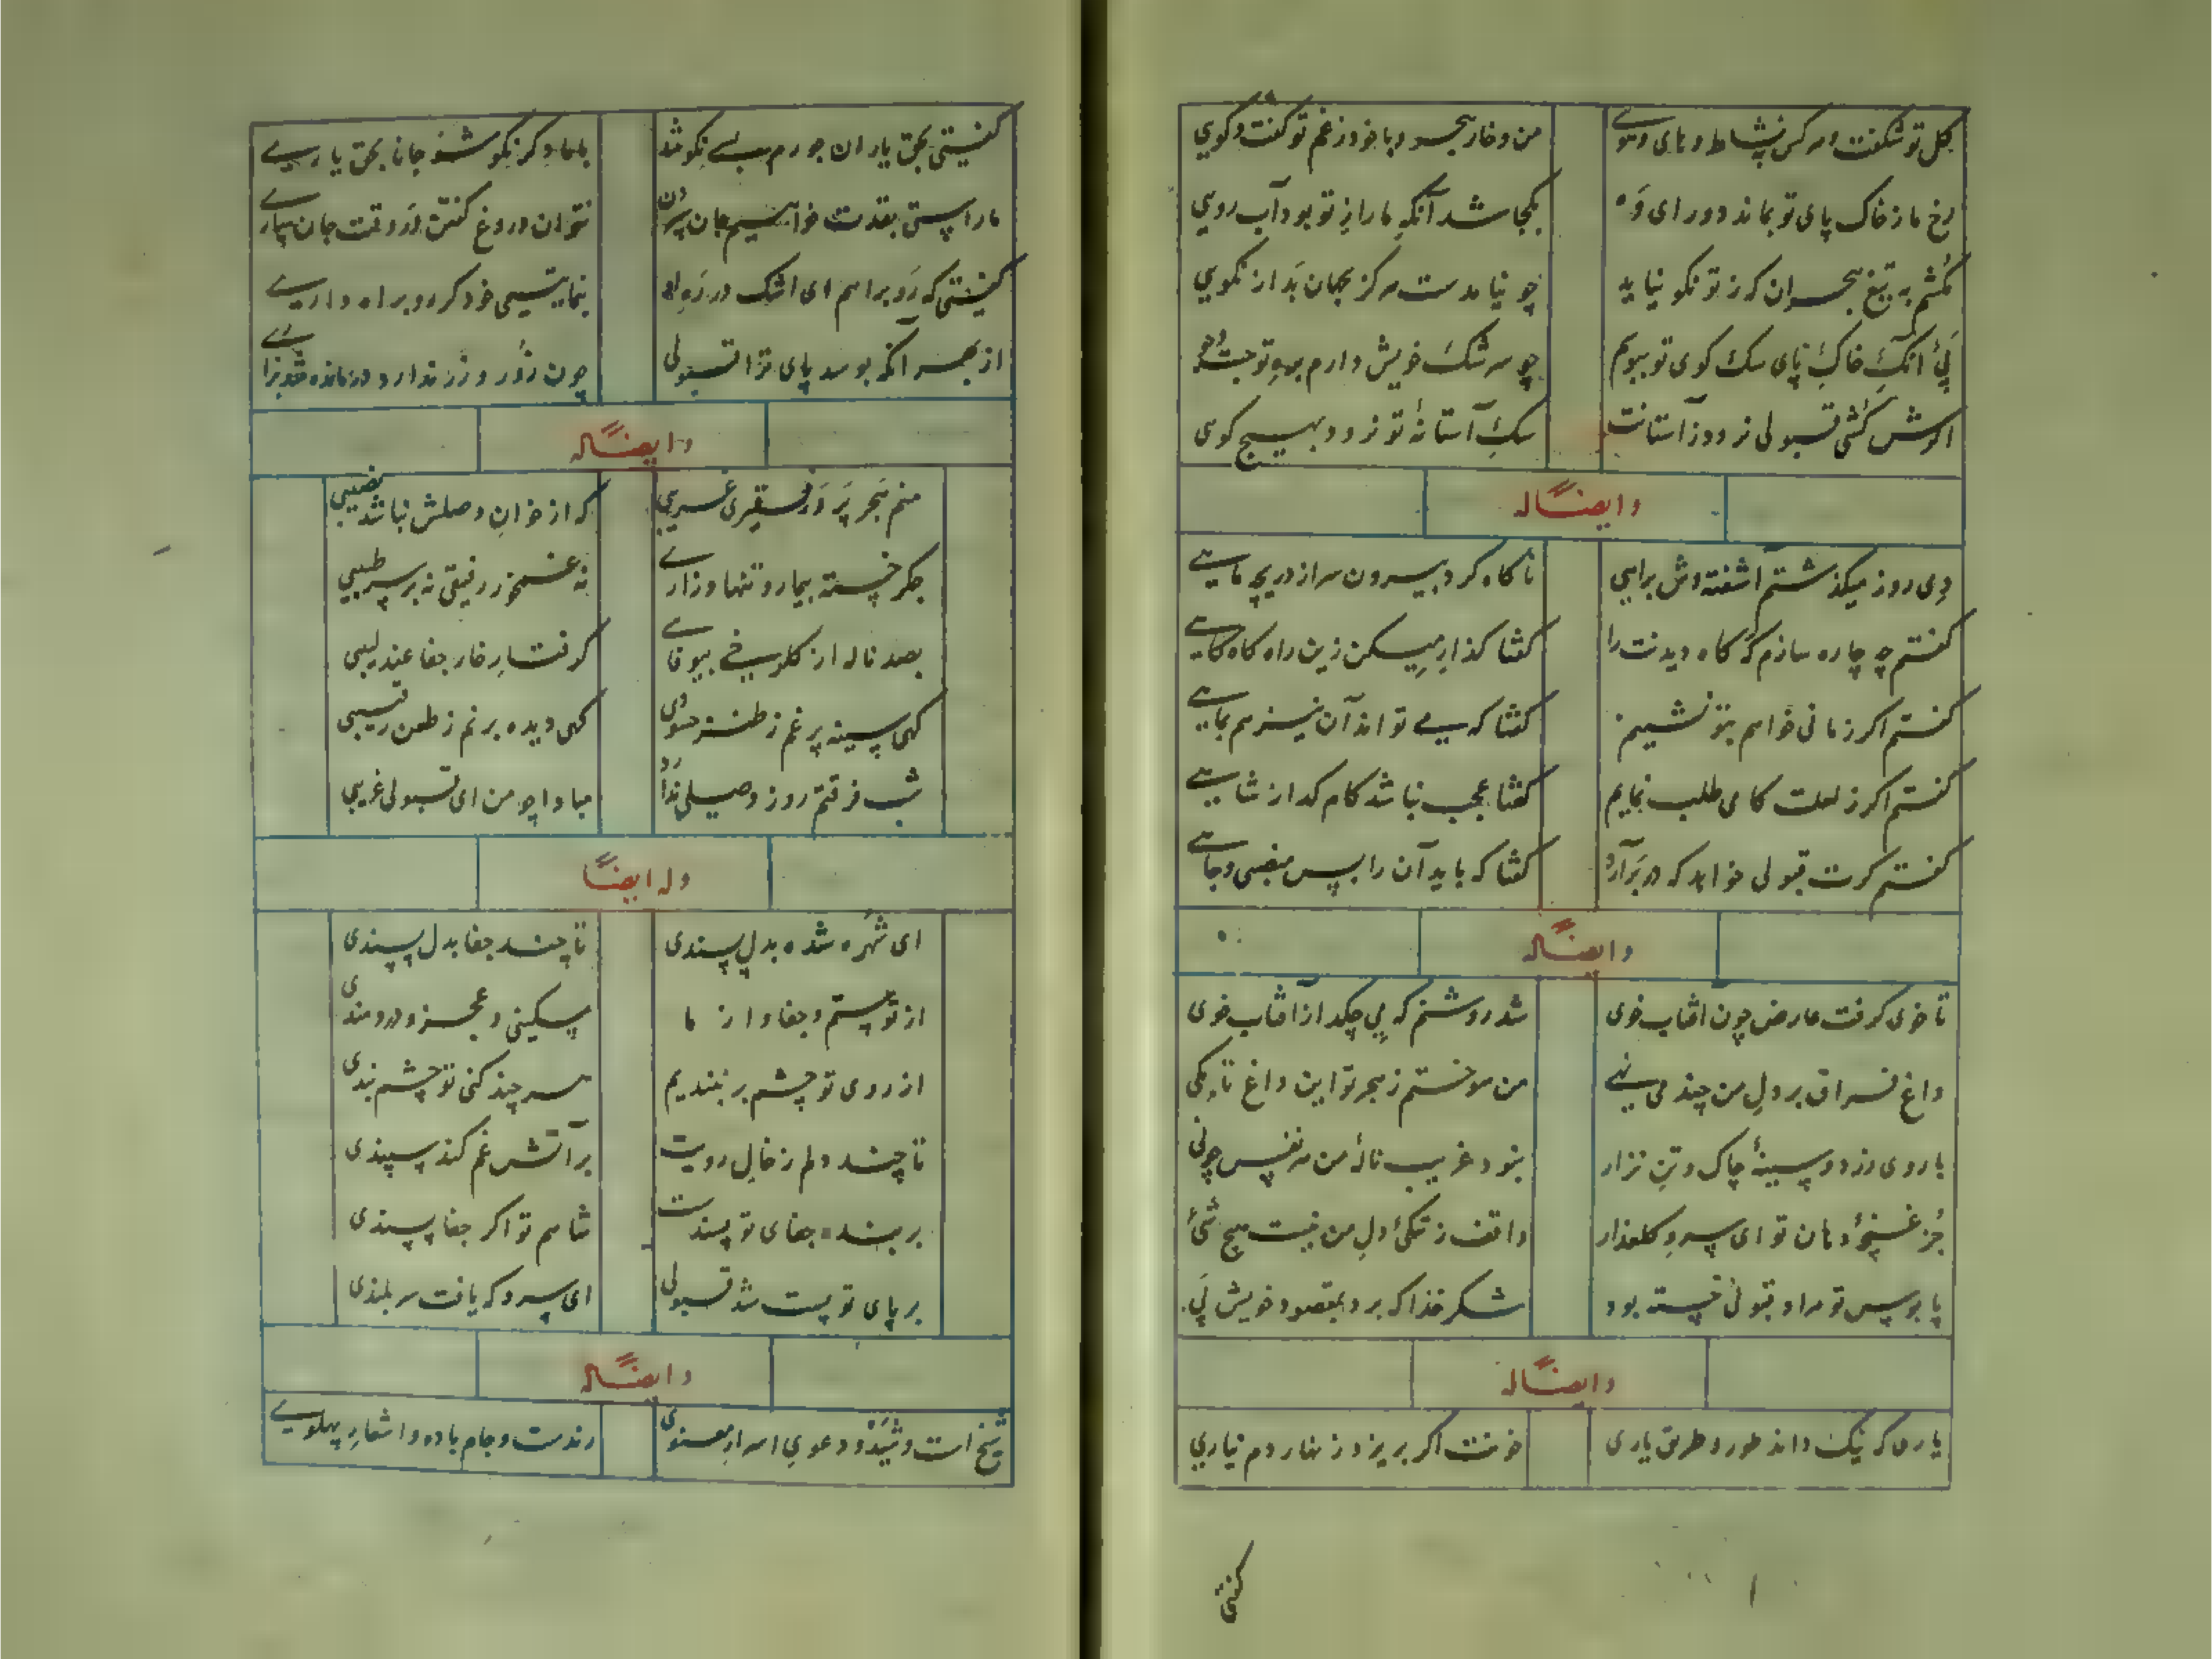 گل تو شکفت و هر کس بنشاط و های و هویی من و خار هجر و با خود ز غم تو گفت و گویی
رخ ما ز خاک پای تو بماند دور ای وه بکجا شد آنکه ما را ز تو بود آب رویی
بکشم به تیغ هجران که ز تو نکو نیاید چو نیامدست هرگز بجهان بد از نکویی
پی آنکه خاک پای سگ کوی تو ببویم چو سرشک خویش دارم بره تو جست و جو
اگرش کشی قبولی نرود ز آستانت سگ آستانه تو نرود بهیچ کوی
وایضا له
دی روز میگذشتم آشفته وش براهی ناگاه کرد بیرون سر از دریچه ماهی
گفتم چه چاره سازم گه گاه دیدنت را گفتا گذار میکن زین راه گاه گاهی
گفتم اگر زمانی خواهم بتو نشینم گفتا که می تواند آن نیز هم بماهی
گفتم اگر ز لعلت کامی طلب نمایم گفتا عجب نباشد کام گدا ز شاهی
گفتم گرت قبولی خواهد که در بر آرد گفتا که باید آن را بس منصبی و جاهی
وایضا له
تا خوی گرفت عارض چون آفتاب خوی شد روشنم که می چکد از آفتاب خوی
داغ فراق بر دل من چند می نهی من سوختم ز هجر تو این داغ تا بکی
با روی زرد و سینه چاک و تن نزار نبود غریب ناله من هر نفس چو نی
جز غنچه دهان تو ای سرو گلعذار واقف ز تنگی دل من نیست هیچ شئ
پا بوس تو مراد قبولی خسته بود شکر خدا که برد بمقصود خویش پی
وایضا له
یاری که نیک داند طور و طریق یاری خونت اگر بریزد زنهار دم نیاری
گفتی
گفتی بحق یاران جورم بسی نکو شد باما دگر نکو شد جانا بحق یاری
ما راستی بقدت خواهیم جان سپردن نتوان دروغ گفتن در وقت جان سپاری
گفتی که رو براهم ای اشک در ره او بنمایتیمی خود گر رو براه داری
از بهر آنکه بوسد پای ترا قبولی چون زور و زر ندارد درمانده شد بزاری
وایضا له
منم هجر پرورد فقیری غریبی که از خوان وصلش نباشد نصیبی
جگر خسته بیمار و تنها و زاری نه غمخور رفیقی نه بر سر طبیبی
بصد ناله از گلرخی بیوفا گرفتار خار جفا عندلیبی
گهی سینه پر غم ز طنز حسودی گهی دیده پر نم ز طعن رقیبی
شب فرقتم روز وصلی ندارد مبادا چو من ای قبولی غریبی
وله ایضا
ای شهره شده بدل پسندی تا چند جفا بدل پسندی
از تو ستم و جفا و از ما مسکینی و عجز و دردمندی
از روی تو چشم بر نبندیم هر چند کنی تو چشم بندی
تا چند دلم ز خال رویت بر آتش غم کند سپندی
بر بنده جفای تو پسندست شاهم تو اگر جفا پسندی
بر پای تو پست شد قبولی ای سرو که یافت سر بلندی
وایضا له
شیخ است و شید و دعوی اسرار معنوی رندست و جام باده و اشعار پهلوی